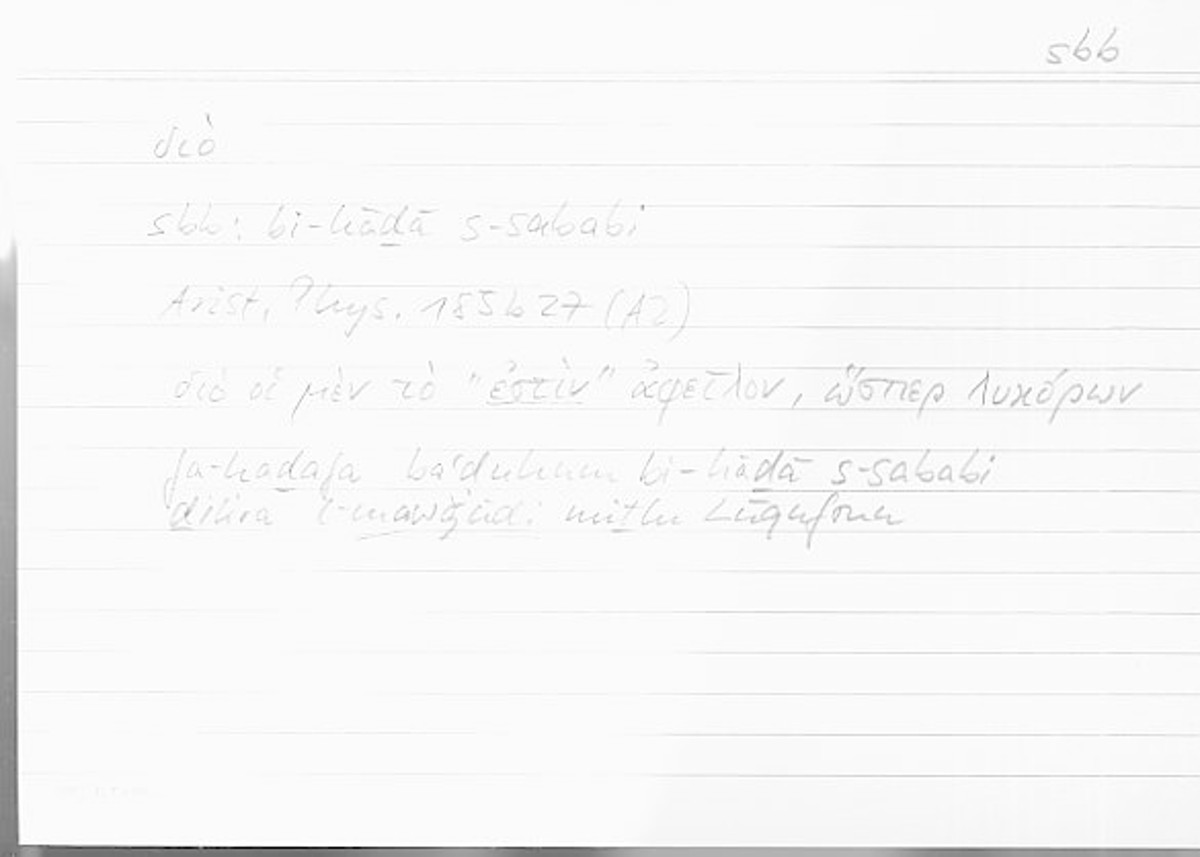 sbb
διὸ
sbb: bi-hāḏā s-sababi
Arist. Phys. 185b27 (A2)
διὸ οἱ μὲν τὸ "ἐστὶν" ἀφεῖλον, ὥσπερ Λυκόφρων
fa-ḥaḏafa baʿḍuhum bi-hāḏā s-sababi
ḏikra l-mawǧūdi miṯlu Lūqufrūna